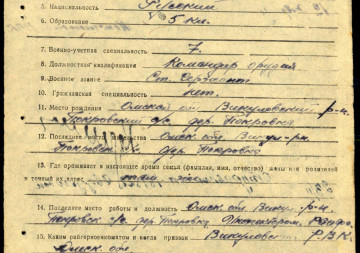 5. Национальность Русский
6. Образование 5 кл.
7. Военно-учетная специальность 7
8. Должностная квалификация Командир орудия
9. Военное звание Ст. Сержант
10. Гражданская специальность нет.
11. Место рождения Омской об Викуловский р-н
Покровский с/с дер. Покровка
12. Последнее место Омск. обл. Викул. р-н
Покровск. с/с дер. Покровка
13. Где проживает в настоящее время семья (фамилия, имя, отчество) жены или родителей
и точный их адрес там
14. Последнее место работы и должность Омск. об. Вику. р-н
Покровск. с/с. дер. Покровка
15. Каким райгорвоенкоматом и когда призван Викуловск. Р.В.К.
Омск. обл.